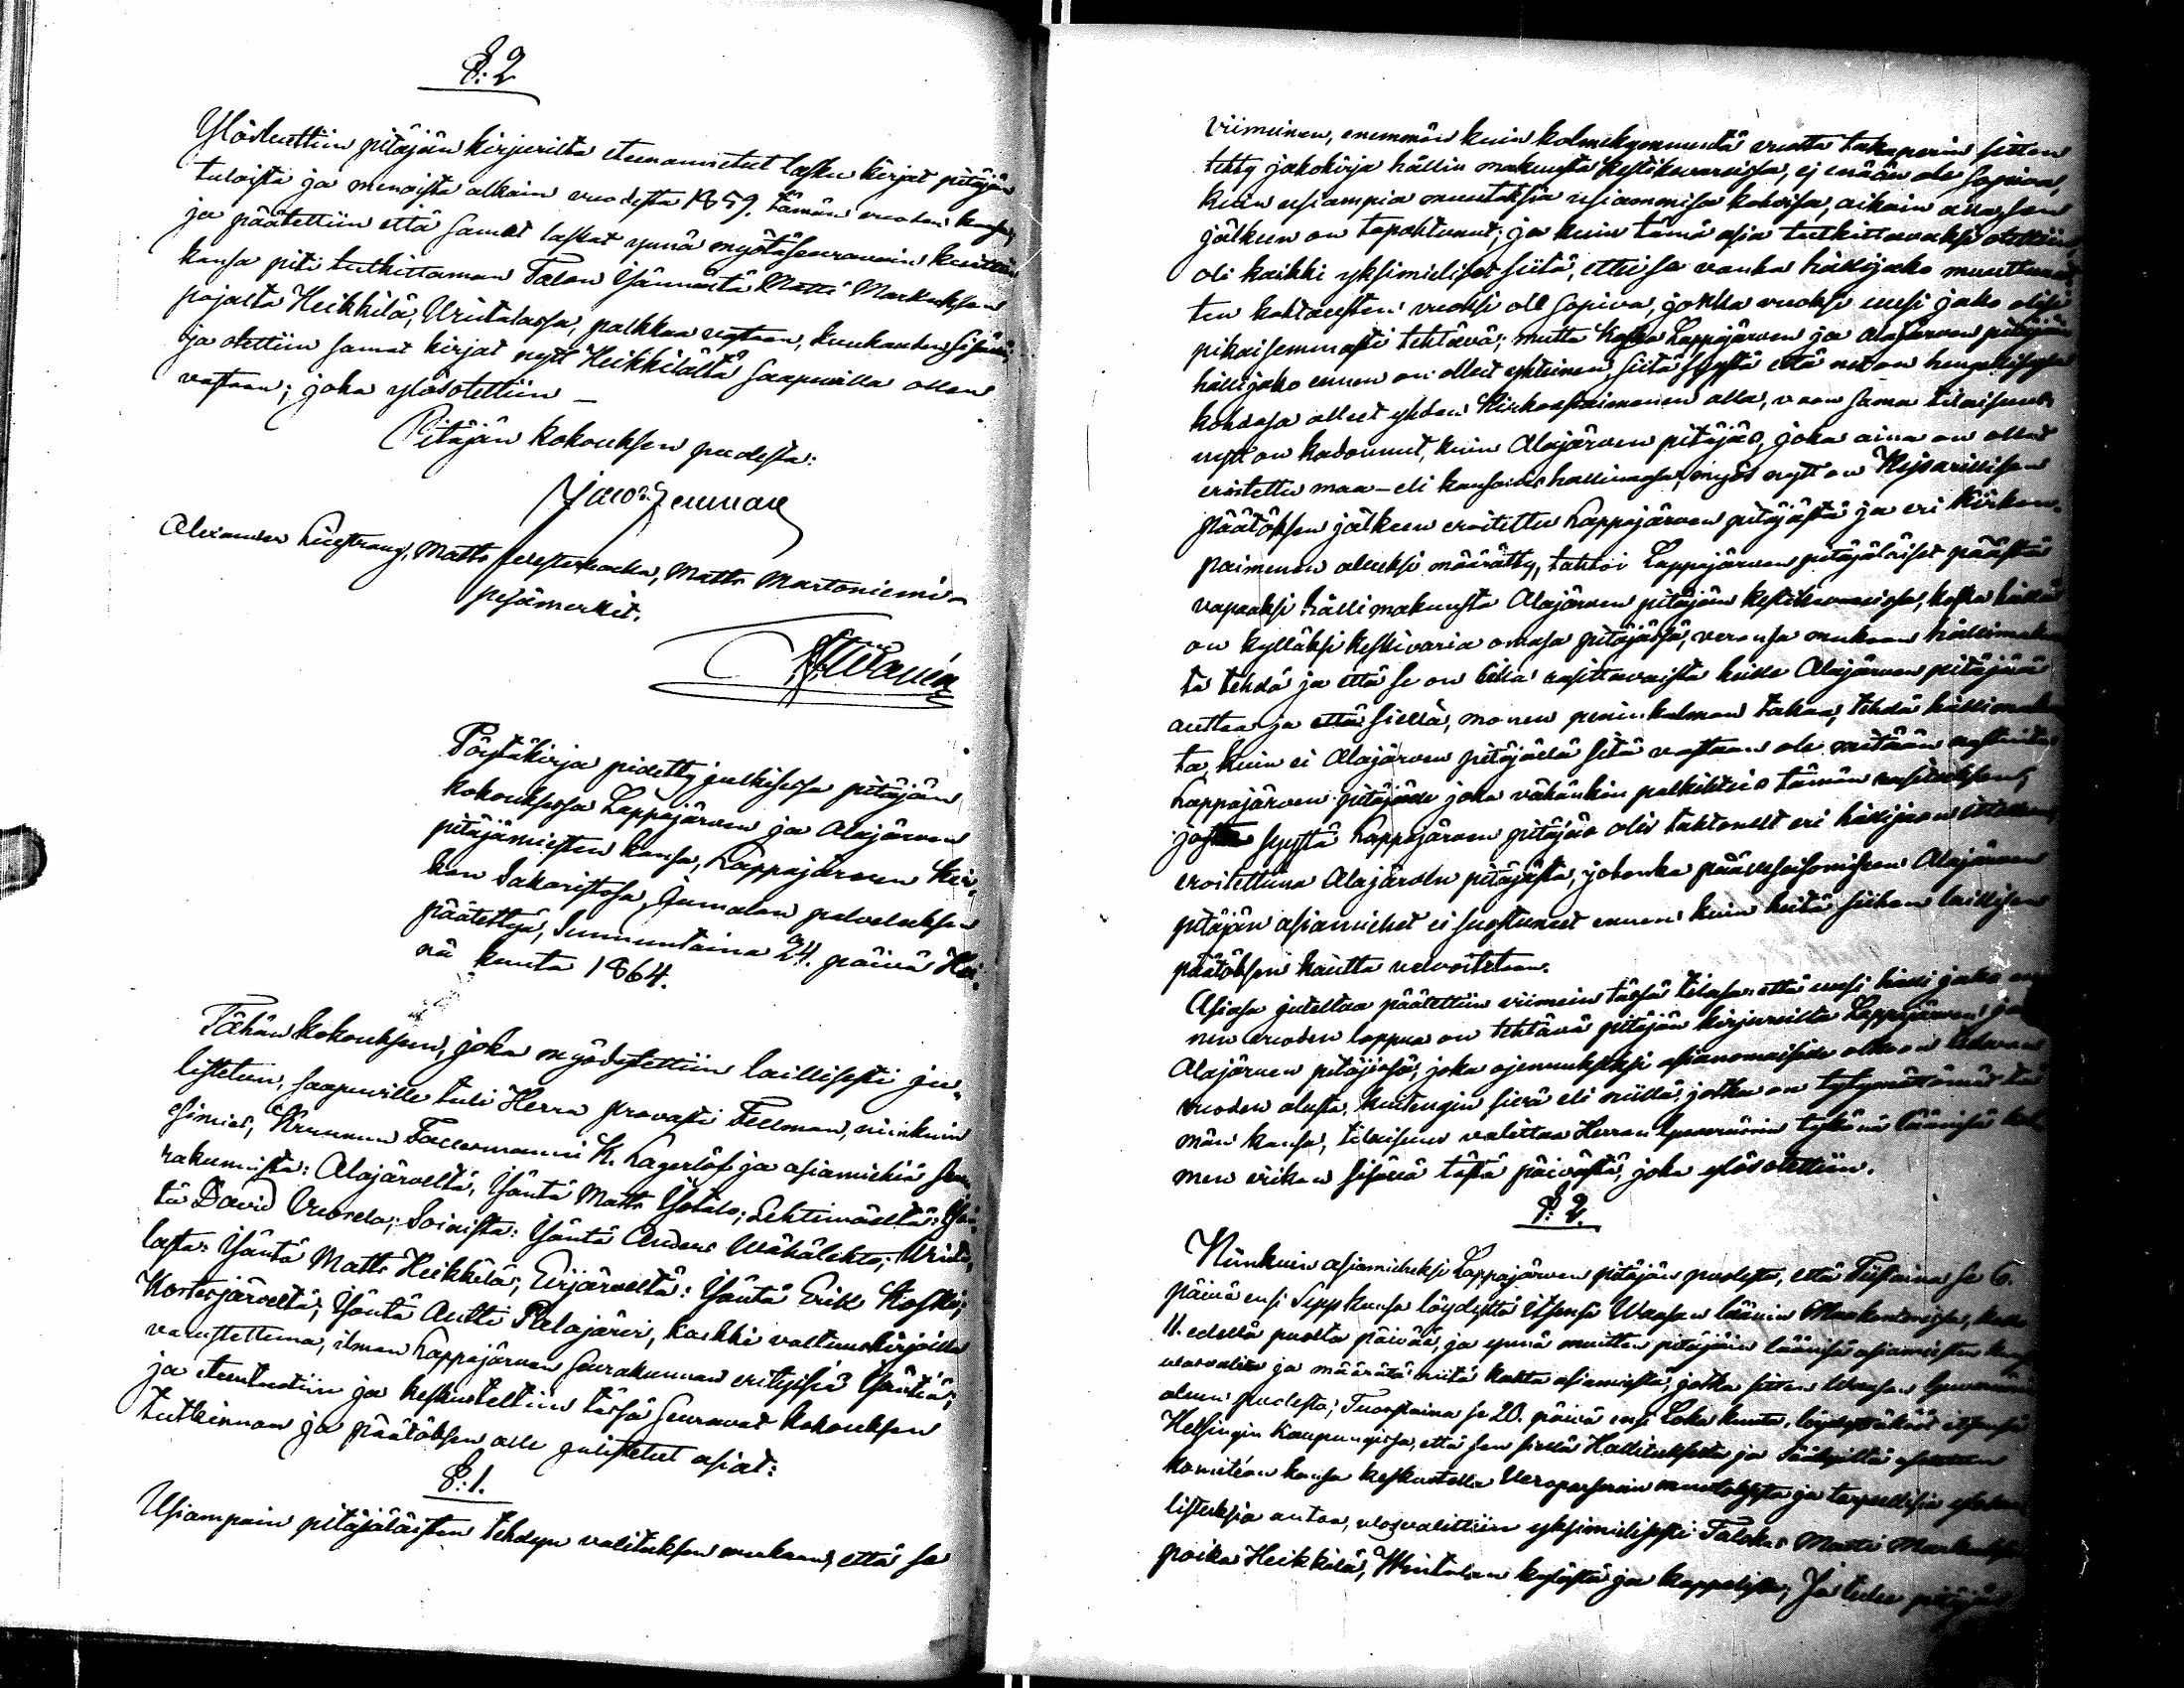 §: 2
Ylösluettiin pitäjän kirjurilta eteenannetut lasku kirjat pitäjän
tuloista ja menoista alkain vuodesta 1859. tämän vuoden
ja päätettiin että samat laskut ynnä myötäseuravain kuittein
kansa piti tutkittaman Talon Isännältä Matti Markuksen
pojalta Heikkilä, Vintalassa, palkkaa vastaan, kuukauden sisään;
ja otettiin samat kirjat nyt Heikkilältä saapuvilla ollen
vastaan; joka ylösotettiin —
Pitäjän kokouksen puolesta:
Jacob Fellman
Alexander Matts Matts Martoniemi
puumerkit.
Pöytäkirja pidetty julkisessa pitäjän
kokouksessa Lappajärven ja Alajärven
pitäjämiesten kansa, Lappajärven Kir-
kon Sakaristosa, Jumalan palveluksen
päätettyä, Sunnuntaina 24. päivä Hei-
nä kuuta 1864.
Tähän kokoukseen, joka myödystettiin laillisesti ju-
listetun, saapuville tuli Herra provasti Fellman, niinkuin
esimies, Kruunun Fallesmanni K. Lagerlöf ja asiamiehiä seu-
rakunnista: Alajärveltä, Isäntä Matts Ylitalo; Lehtimäeltä: Isän-
tä David Vuorela; Soinista: Isäntä Anders Wähälehto; Winda-
lasta: Isäntä Matts Heikkilä; Evijärveltä: Isäntä Erik Koski;
Kortesjärveltä; Isäntä Antti Palojärvi, kaikki valtuuskirjoilla
varustettuna, ilman Lappajärven Seurakunnan erityisiä Isäntiä;
ja eteentuotiin ja keskusteltiin tässä seuravat kokouksen
tutkinnon ja päätöksen alle julistetut asiat:
§: 1.
Usiampain pitäjäläisten tehdyn valituksen mukaan, että se
viimeinen, enemmän kuin kolmekymmentä vuotta takaperin sitten
tehty jakokirja hällin makuusta kestikievareissa, ej enään ole sopiva,
kuin usiampia muutoksia usiammissa kohdissa, aikain alla, sen
jälkeen on tapahtunut; ja kuin tämä asia tutkittavaksi otettiin
oli kaikki yksimieliset siitä, ettei se vanha hällijako muuttunut-
ten kohtausten vuoksi ole sopiva, jonka vuoksi uusi jako olisi
pikaisemmasti tehtävä; mutta koska Lappajärven ja Alajärven pitäjäin
hällijako ennen on ollut yhteinen, siitä syystä että net on hengellisesä
kohdasa olleet yhden Kirkonpaimenen alla, vaan sama tilaisuus
nyt on kadonnut, kuin Alajärven pitäjäs, joka aina on ollut
eroitettu maa- eli kansan hallinnosa, myös nyt on Kejsarillisen
päätöksen jälkeen eroitettu Lappajärven pitäjästä ja eri Kirkon-
paimenen alueksi määrätty, tahtoi Lappajärven pitäjäläiset päästä
vapaaksi hällimakuusta Alajärven pitäjän kestikievareissa, koska heillä
on kylläksi kestivaria omasa pitäjäsä, veronsa mukaan hällimakuu-
ta tehdä ja että se on liika rasittavaista heille Alajärven pitäjää
auttaa ja että siellä, monen peninkulman takaa, tehdä hällimakuu-
ta, kuin ei Alajärven pitäjällä sitä vastaan ole mitään
Lappajärven pitäjäle joka vähänkin palkihteis tämän rasituksen,
josta syystä Lappajärven pitäjäs olis tahtonut eri hällijaon
eroitettuna Alajärven pitäjästä, johonka päällesaisomiseen Alajärven
pitäjän asiamiehet ei suostuneet ennen kuin heitä siihen laillisen
päätöksen kautta velvoitetaan.
Asiasa juteltua päätettiin viimein tässä tilasa että uusi hälli jako en-
nen vuoden loppua on tehtävä pitäjän kirjureilta Lappajärven ja
Alajärven pitäjissä, joka ojennukseksi asianomaisille olkoon tulevan
vuoden alusta, kuitengin sievä eli niillä, jotka on tytymättömät tä-
män kansa, tilaisuus valittaa Herran Guvernörin tykönä Läänissä kol-
men viikon sisällä tästä päivästä, joka ylösotettiin.
§: 2.
Niinkuin asiamieheksi Lappajärven pitäjän puolesta, että Tiistaina se 6.
päivä ensi Syyskuusa löydyttä itsensä Waasan läänin Maakontorissa, kello
11. edellä puolta päivää, ja ynnä muitten pitäjäin läänisä asiamiesten kansa
ulosvalita ja määrätä niitä kahta asiamiestä, jotka sitten Waasan Guvernörin
alvun puolesta; Tuorstaina se 20. päivä ensi Loka kuuta, löydyttäköt itsensä
Helsingin Kaupungissa, että sen siellä Hallitukselta ja Säädyiltä asetetun
komitéan kansa keskustella Veroparseain muutoksista ja tarpeellisia
listuksia antaa, ulosvalittiin yksimielisesti Talokas Matti Markuksen
poika Heikkilä, Wintalan kylästä ja kappelista; Ja tulee pitäjän